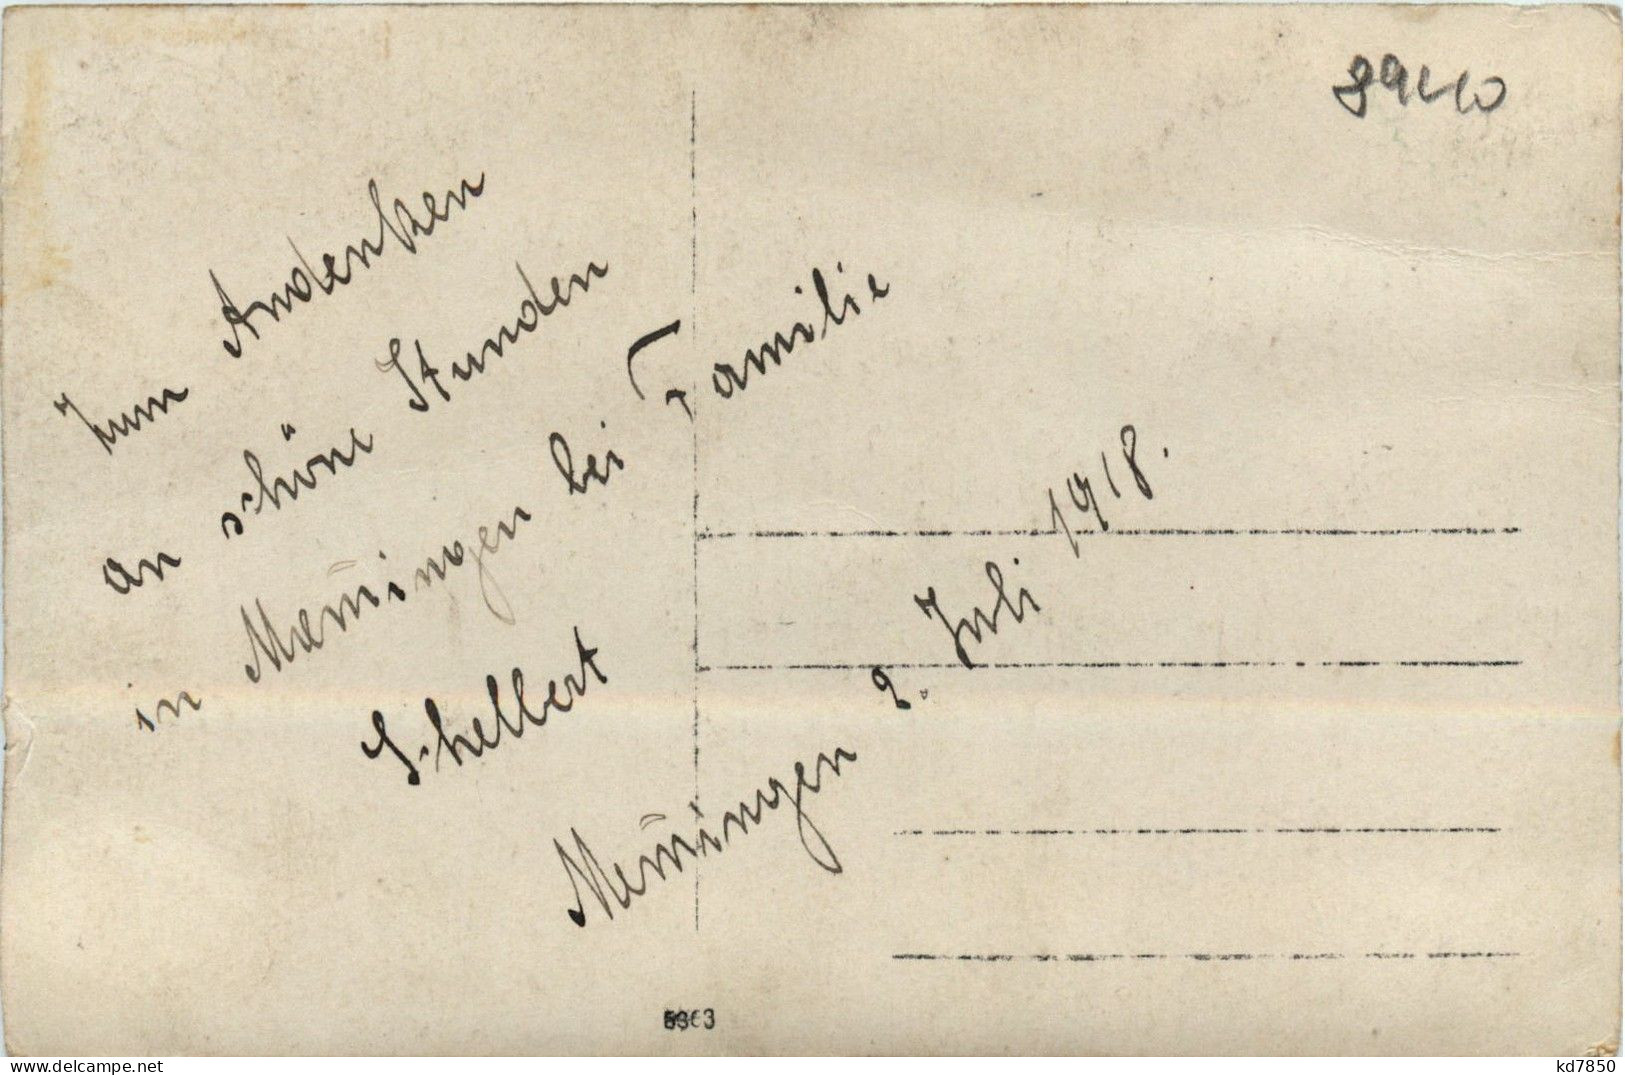 89440
Zum Andenken
an schöne Stunden
in Mem̅ingen bei Familie
Schellbert
Mem̅ingen 2. Juli 1918.
www.delcampe.net
kd7850